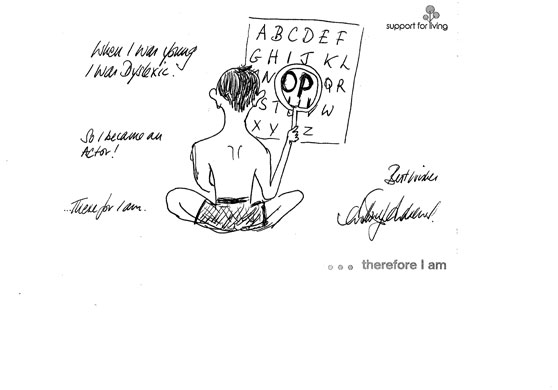 support for living
When I was young
I was Dyslexic.
So I became an
Actor!
...There for I am.
A B C D E F
G H I J K L
N OP QR
S T W
X Y Z
Best wishes
... therefore I am